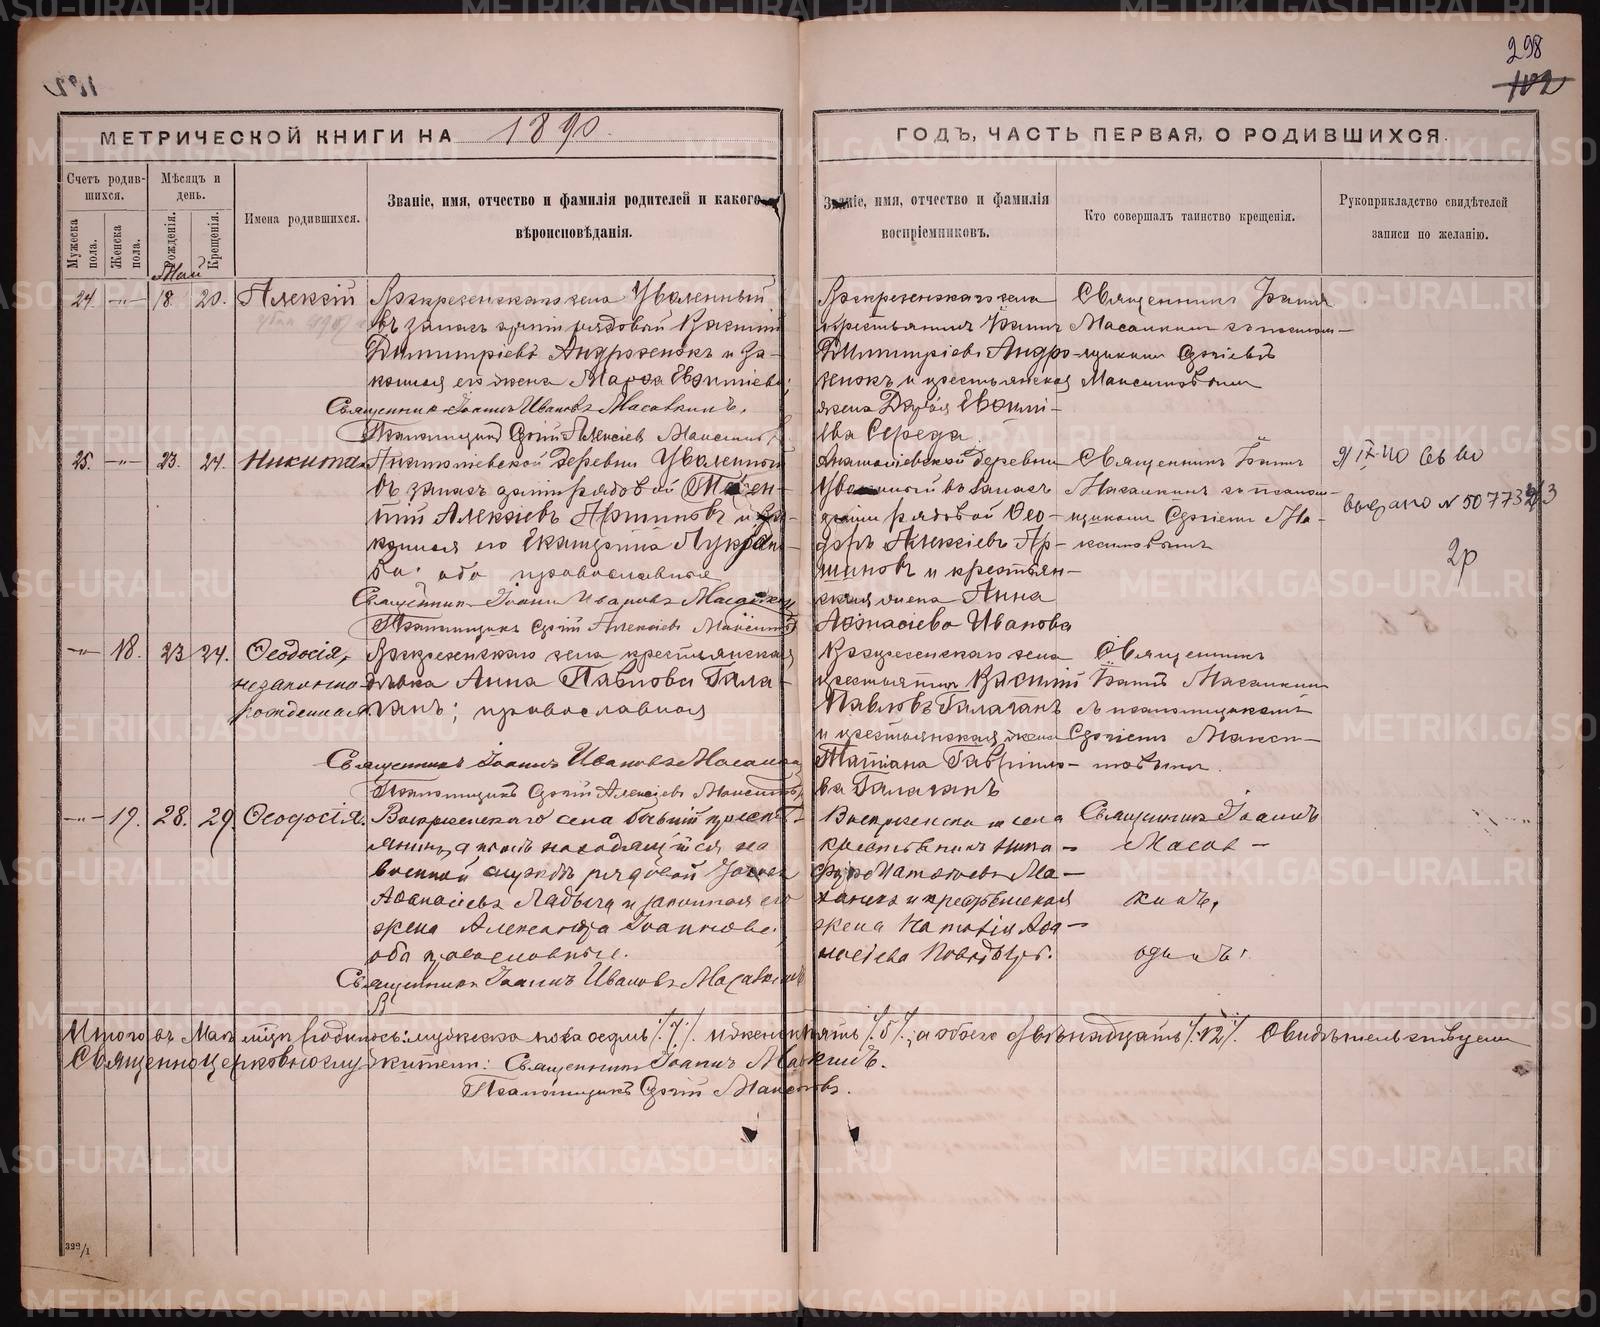 298
102
МЕТРИЧЕСКОЙ КНИГИ НА 1890
ГОДЪ, ЧАСТЬ ПЕРВАЯ, О РОДИВШИХСЯ.
Счетъ родившихся.
Мужеска пола.
Женска пола.
Мѣсяцъ и день.
Рожденія.
Крещенія.
Имена родившихся.
Званіе, имя, отчество и фамилія родителей и какого вѣроисповѣданія.
Званіе, имя, отчество и фамилія воспріемниковъ.
Кто совершалъ таинство крещенія.
Рукоприкладство свидѣтелей записи по желанію.
Май
24. -"- 18. 20. Алексій
Воскресенскаго села Уволенный
въ запасъ арміи рядовый Василій
Димитріевъ Андросенокъ и за-
конная его жена Марѳа Евѳиміева;
Священникъ Іоаннъ Ивановъ Масалкинъ.
Псаломщикъ Сергій Алексіевъ Максимовъ
Воскресенскаго села
крестьянинъ Іоаннъ
Димитріевъ Андро-
сенокъ и крестьянская
жена Дарія Евѳимі-
ева Середа.
Священникъ Іоаннъ
Масалкинъ съ псалом-
щикомъ Сергіемъ
Максимовымъ
25. -"- 23. 24. Никита
Анатоліевской деревни Уволенный
въ запасъ арміи рядовой
Алексіевъ Аршиновъ и за-
конная его Екатерина
ва: оба православные
Священникъ Іоаннъ Ивановъ Масалкинъ
Псаломщикъ Сергій Алексіевъ Максимовъ
Анатоліевской деревни
Уволенный въ запасъ
арміи рядовой Ѳео-
доръ Алексіевъ Ар-
шиновъ и крестьян-
ская жена Анна
Аѳанасіева Иванова
Священникъ Іоаннъ
Масалкинъ съ псалом-
щикомъ Сергіемъ Ма-
ксимовымъ
выдано № 50773
2р
-"- 18. 23 24. Ѳеодосія,
незаконно
рожденная.
Воскресенскаго села крестьянская
дѣвка Анна Павлова Гала-
ганъ; православная
Священникъ Іоаннъ Ивановъ Масалкинъ
Псаломщикъ Сергій Алексіевъ Максимовъ
Воскресенскаго села
крестьянинъ Василій
Павловъ Галаганъ
и крестьянская жена
Татіана Гаврiило-
ва Галаганъ
Священникъ
Іоаннъ Масалкинъ
съ псаломщикомъ
Сергіемъ Макси-
мовымъ.
-"- 19. 28. 29. Ѳеодосія.
Воскресенскаго села бывшій крест-
янинъ, а нынѣ находящійся на
военной службѣ рядовой
Аѳанасіевъ Ладыга и законная его
жена Александра Іоаннова,
оба православные.
Священникъ Іоаннъ Ивановъ Масалкинъ
Воскресенскаго села
крестьянинъ Ники-
форъ Ма-
и крестьянская
жена Наталія Аѳа-
насіева
Священникъ Іоаннъ
Масал-
кинъ,
одинъ.
Итого въ Маѣ м-цѣ родилось: мужеска пола семь /7/. и женска пять /5/, а обоего двѣнадцать /12/. Свидѣтельствуемъ
Священноцерковнослужители: Священникъ Іоаннъ Масалкинъ.
Псаломщикъ Сергій Максимовъ.
399/1
METRIKI.GASO-URAL.RU